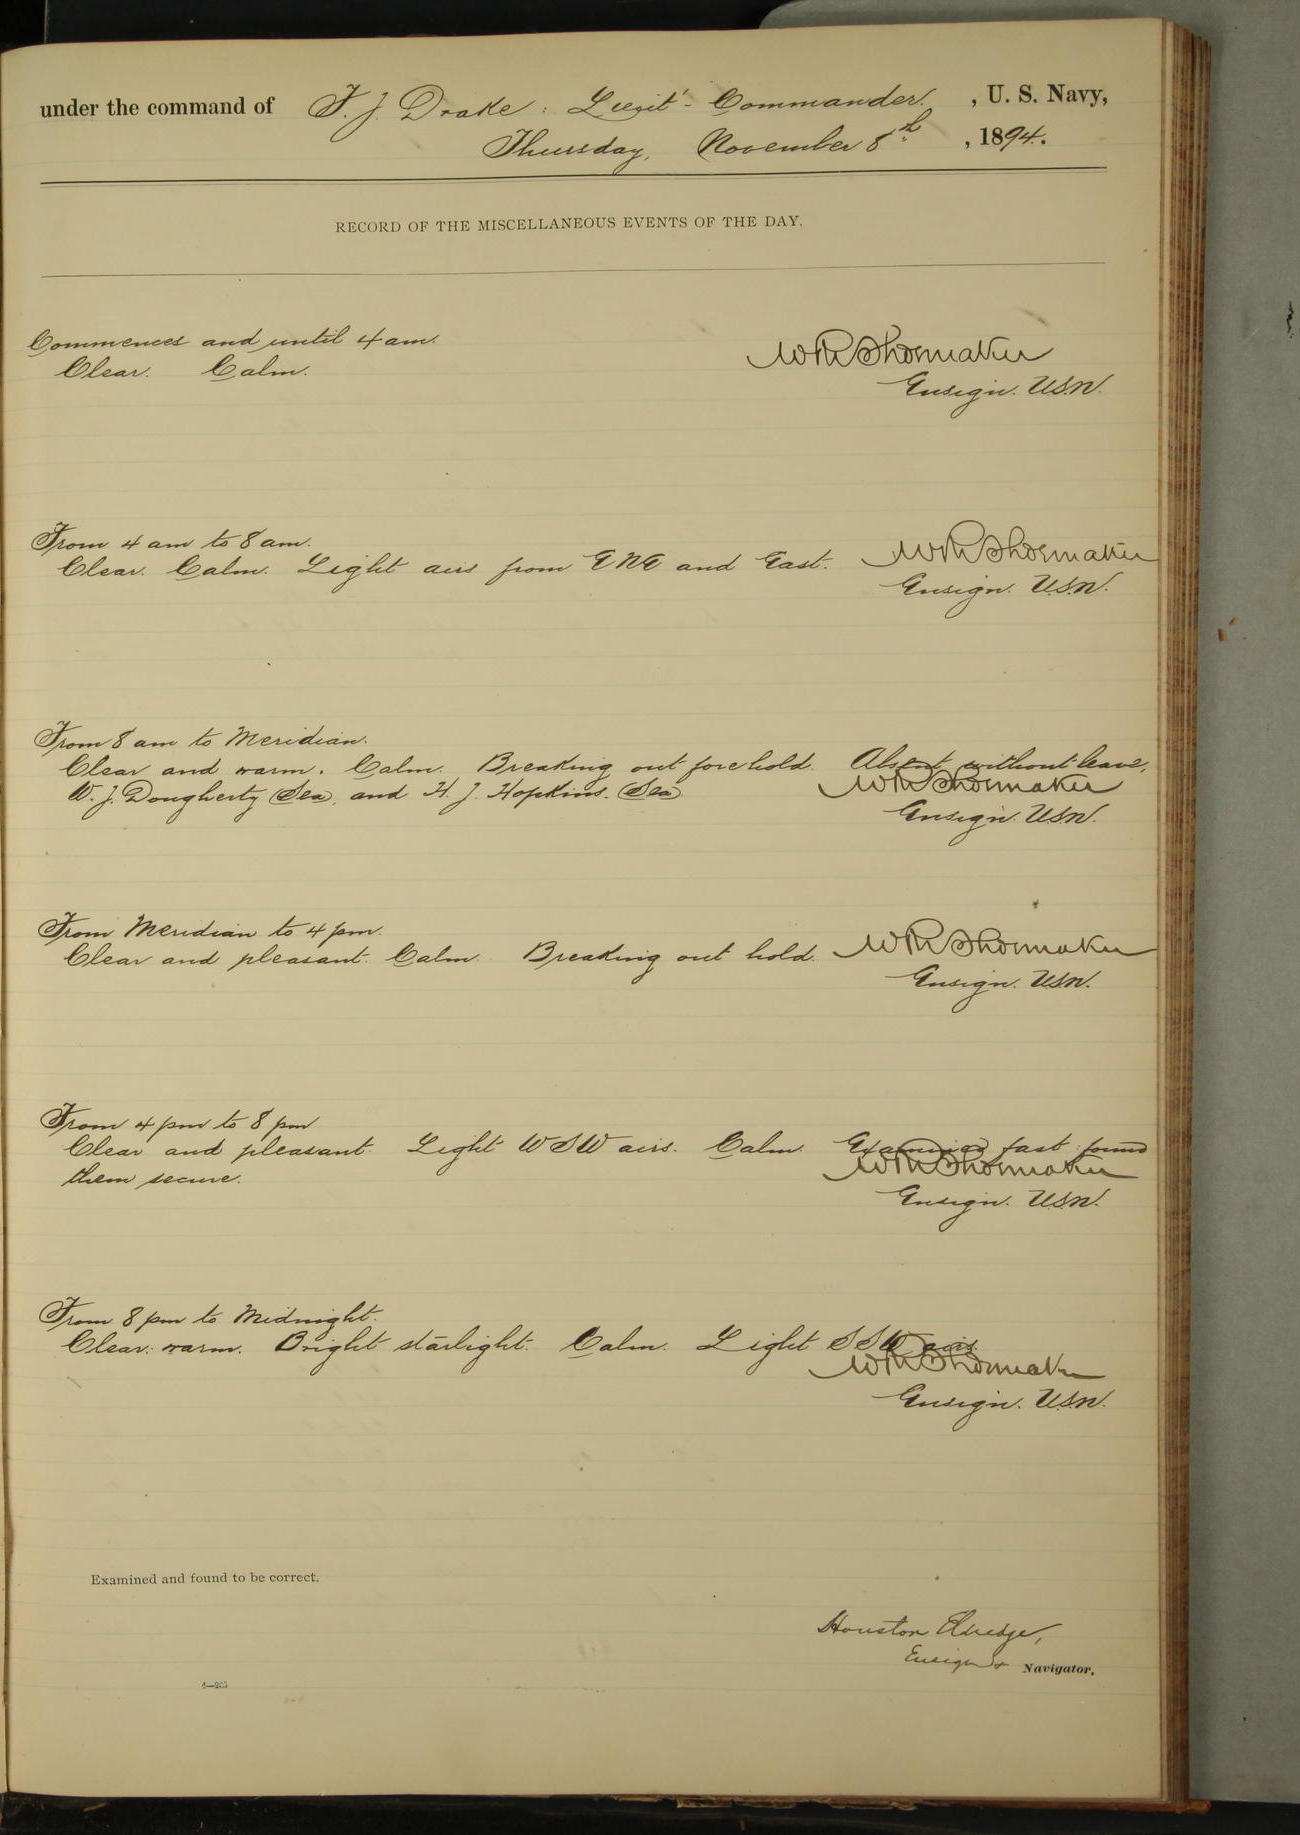 under the command of F. J. Drake, Lieut- Commander, U. S. Navy,
Thursday, November 8th, 1894.
RECORD OF THE MISCELLANEOUS EVENTS OF THE DAY.
Commences and until 4 am.
Clear. Calm.
WR Shoemaker
Ensign. U.S.N.
From 4 am to 8 am.
Clear. Calm. Light airs from ENE and East.
WR Shoemaker
Ensign. U.S.N.
From 8 am to Meridian.
Clear and warm. Calm. Breaking out fore hold. Absent without leave,
W. J. Dougherty (Sea) and H. J. Hopkins. (Sea)
WR Shoemaker
Ensign. U.S.N.
From Meridian to 4 pm.
Clear and pleasant. Calm. Breaking out hold.
WR Shoemaker
Ensign. U.S.N.
From 4 pm to 8 pm
Clear and pleasant. Light WSW airs. Calm. Examined fast found
them secure.
WR Shoemaker
Ensign. U.S.N.
From 8 pm to Midnight.
Clear. warm. Bright starlight. Calm. Light SSW airs.
WR Shoemaker
Ensign. U.S.N.
Examined and found to be correct.
Houston Eldredge,
Ensign & Navigator.